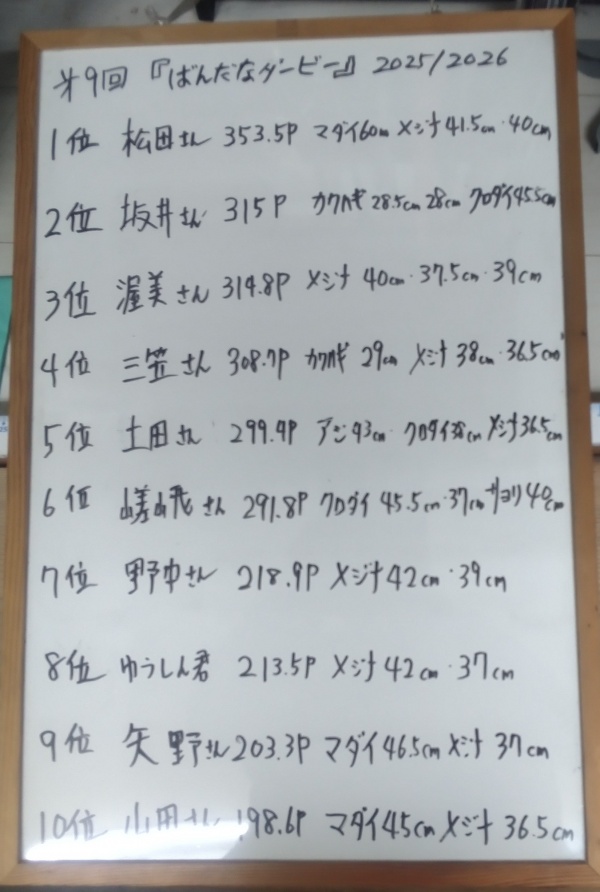 第9回『ばんだなダービー』 2025/2026
1位 松田さん 353.5P マダイ60cm メジナ 41.5cm・40cm
2位 坂井さん 315P カワハギ 28.5cm 28cm クロダイ45.5cm
3位 渥美さん 314.8P メジナ 40cm・37.5cm・39cm
4位 三笠さん 308.7P カワハギ 29cm メジナ 38cm・36.5cm
5位 土田さん 299.9P アジ43cm・クロダイ38cm メジナ36.5cm
6位 嵯峨さん 291.8P クロダイ 45.5cm・37cm サヨリ40cm
7位 野中さん 218.9P メジナ42cm・39cm
8位 ゆうしん君 213.5P メジナ42cm・37cm
9位 矢野さん 203.3P マダイ46.5cm メジナ 37cm
10位 山田さん 198.6P マダイ45cm メジナ 36.5cm